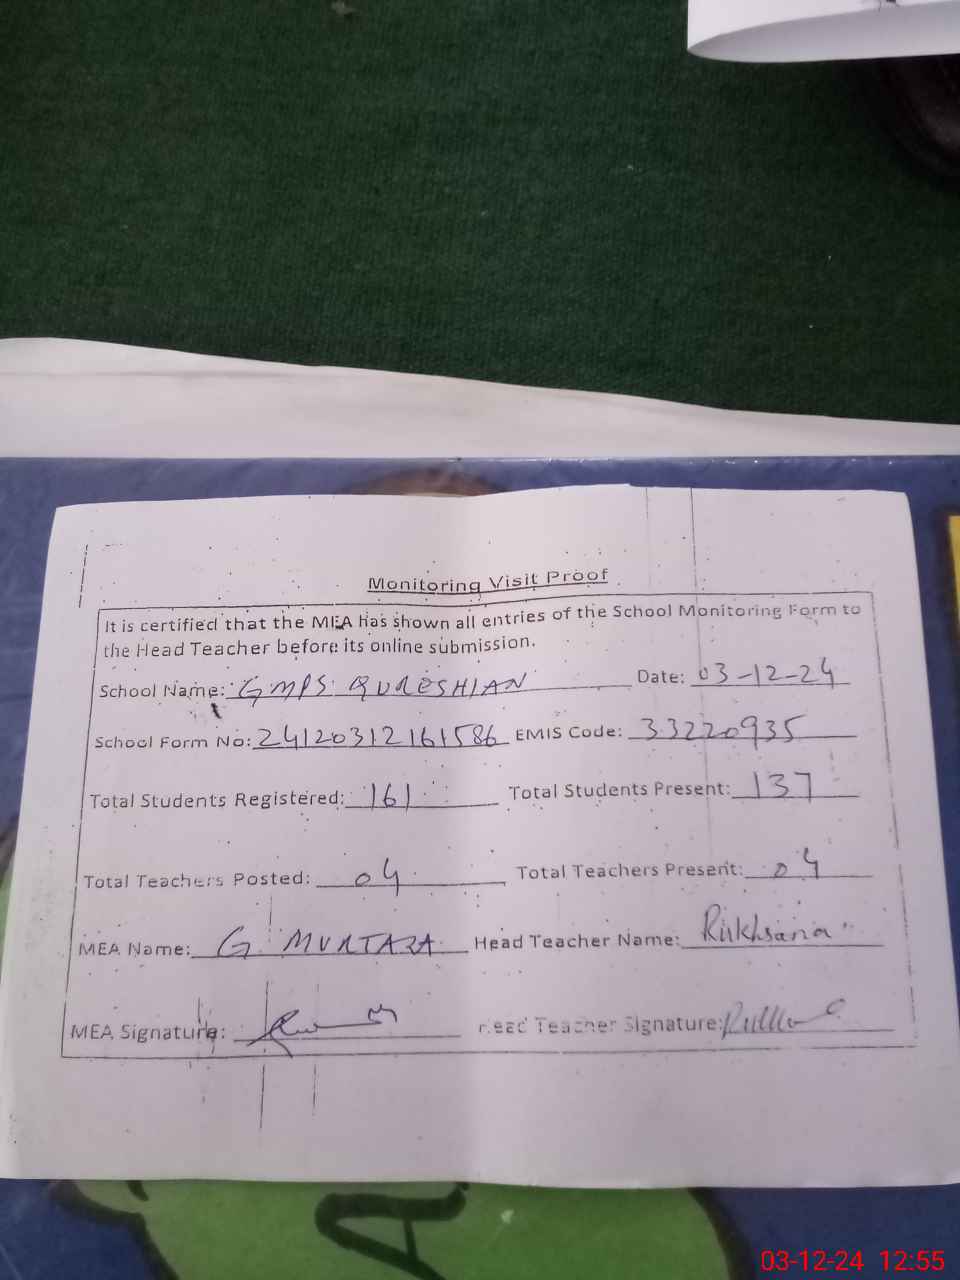 Monitoring Visit Proof
It is certified that the MEA has shown all entries of the School Monitoring Form to
the Head Teacher before its online submission.
School Name: GMPS QURESHIAN Date: 03-12-24
School Form No: 24120312161586 EMIS Code: 33220935
Total Students Registered: 161 Total Students Present: 137
Total Teachers Posted: 04 Total Teachers Present: 04
MEA Name: G. MURTAZA Head Teacher Name: Rukhsana
MEA Signature: Head Teacher Signature:
03-12-24 12:55